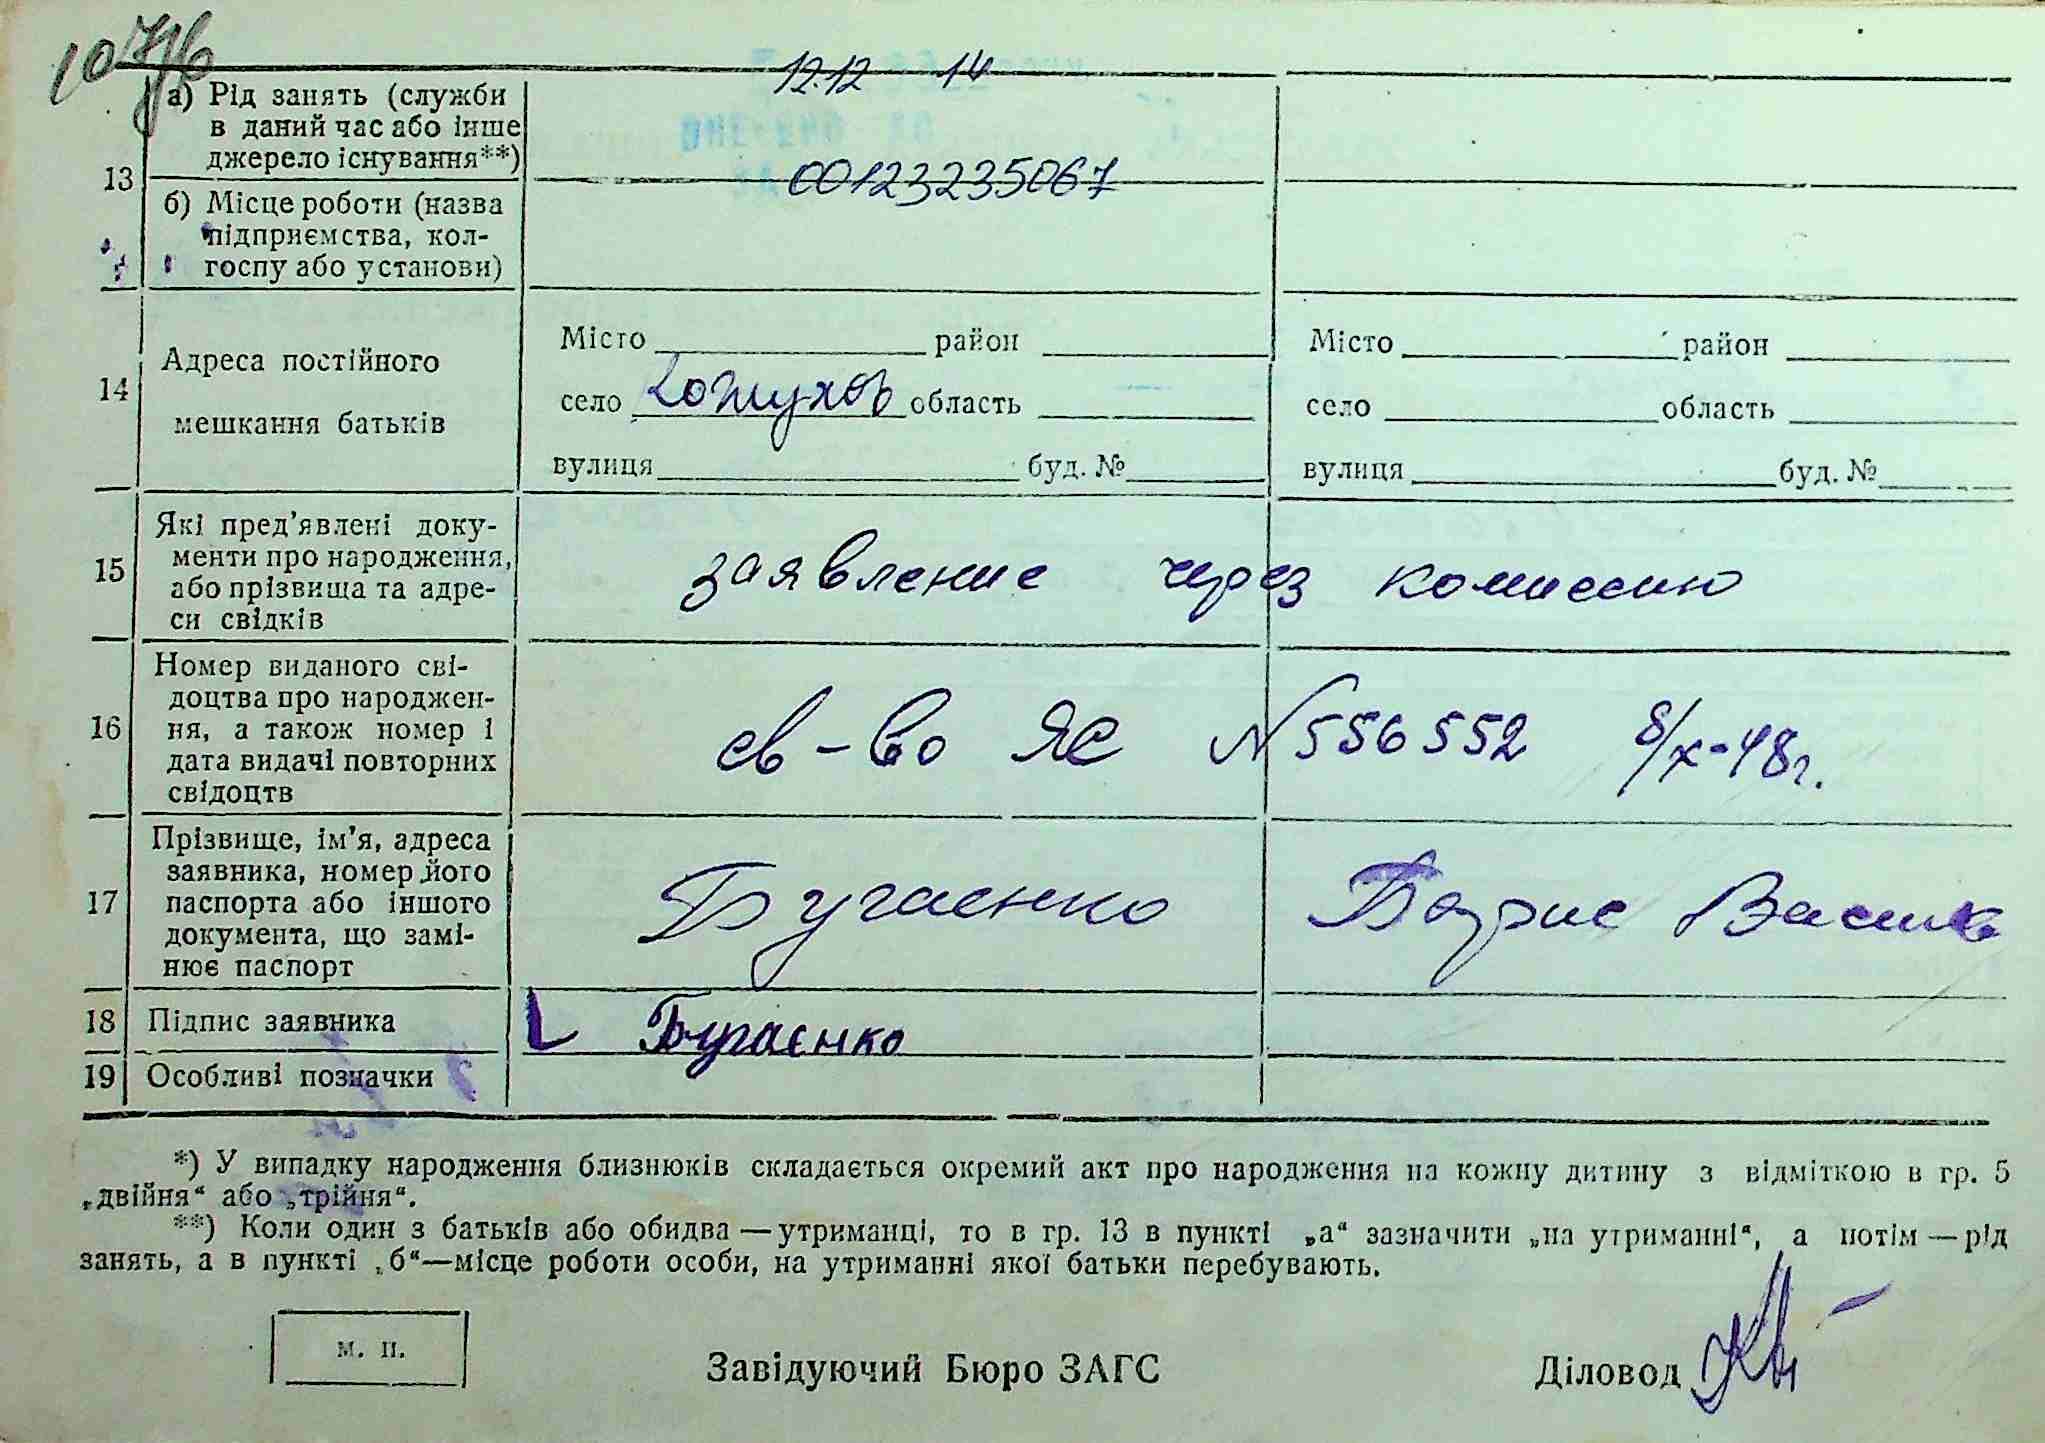 1076
12.12 14
13 а) Рід занять (служби
в даний час або інше
джерело існування**)
001232235067
б) Місце роботи (назва
підприємства, кол-
госпу або установи)
14 Адреса постійного
мешкання батьків
Місто район
село область
вулиця буд. №
Місто район
село область
вулиця буд. №
15 Які пред'явлені доку-
менти про народження,
або прізвища та адре-
си свідків
заявление через комиссию
16 Номер виданого сві-
доцтва про народжен-
ня, а також номер і
дата видачі повторних
свідоцтв
св-во ЯС N 556552 8/X-48г.
17 Прізвище, ім'я, адреса
заявника, номер його
паспорта або іншого
документа, що замі-
нює паспорт
Бугаенко Борис Васил
18 Підпис заявника
Бугаенко
19 Особливі позначки
*) У випадку народження близнюків складається окремий акт про народження на кожну дитину з відміткою в гр. 5
„двійня“ або „трійня“.
**) Коли один з батьків або обидва — утриманці, то в гр. 13 в пункті „а“ зазначити „на утриманні“, а потім — рід
занять, а в пункті „б“—місце роботи особи, на утриманні якої батьки перебувають.
м. п.
Завідуючий Бюро ЗАГС
Діловод